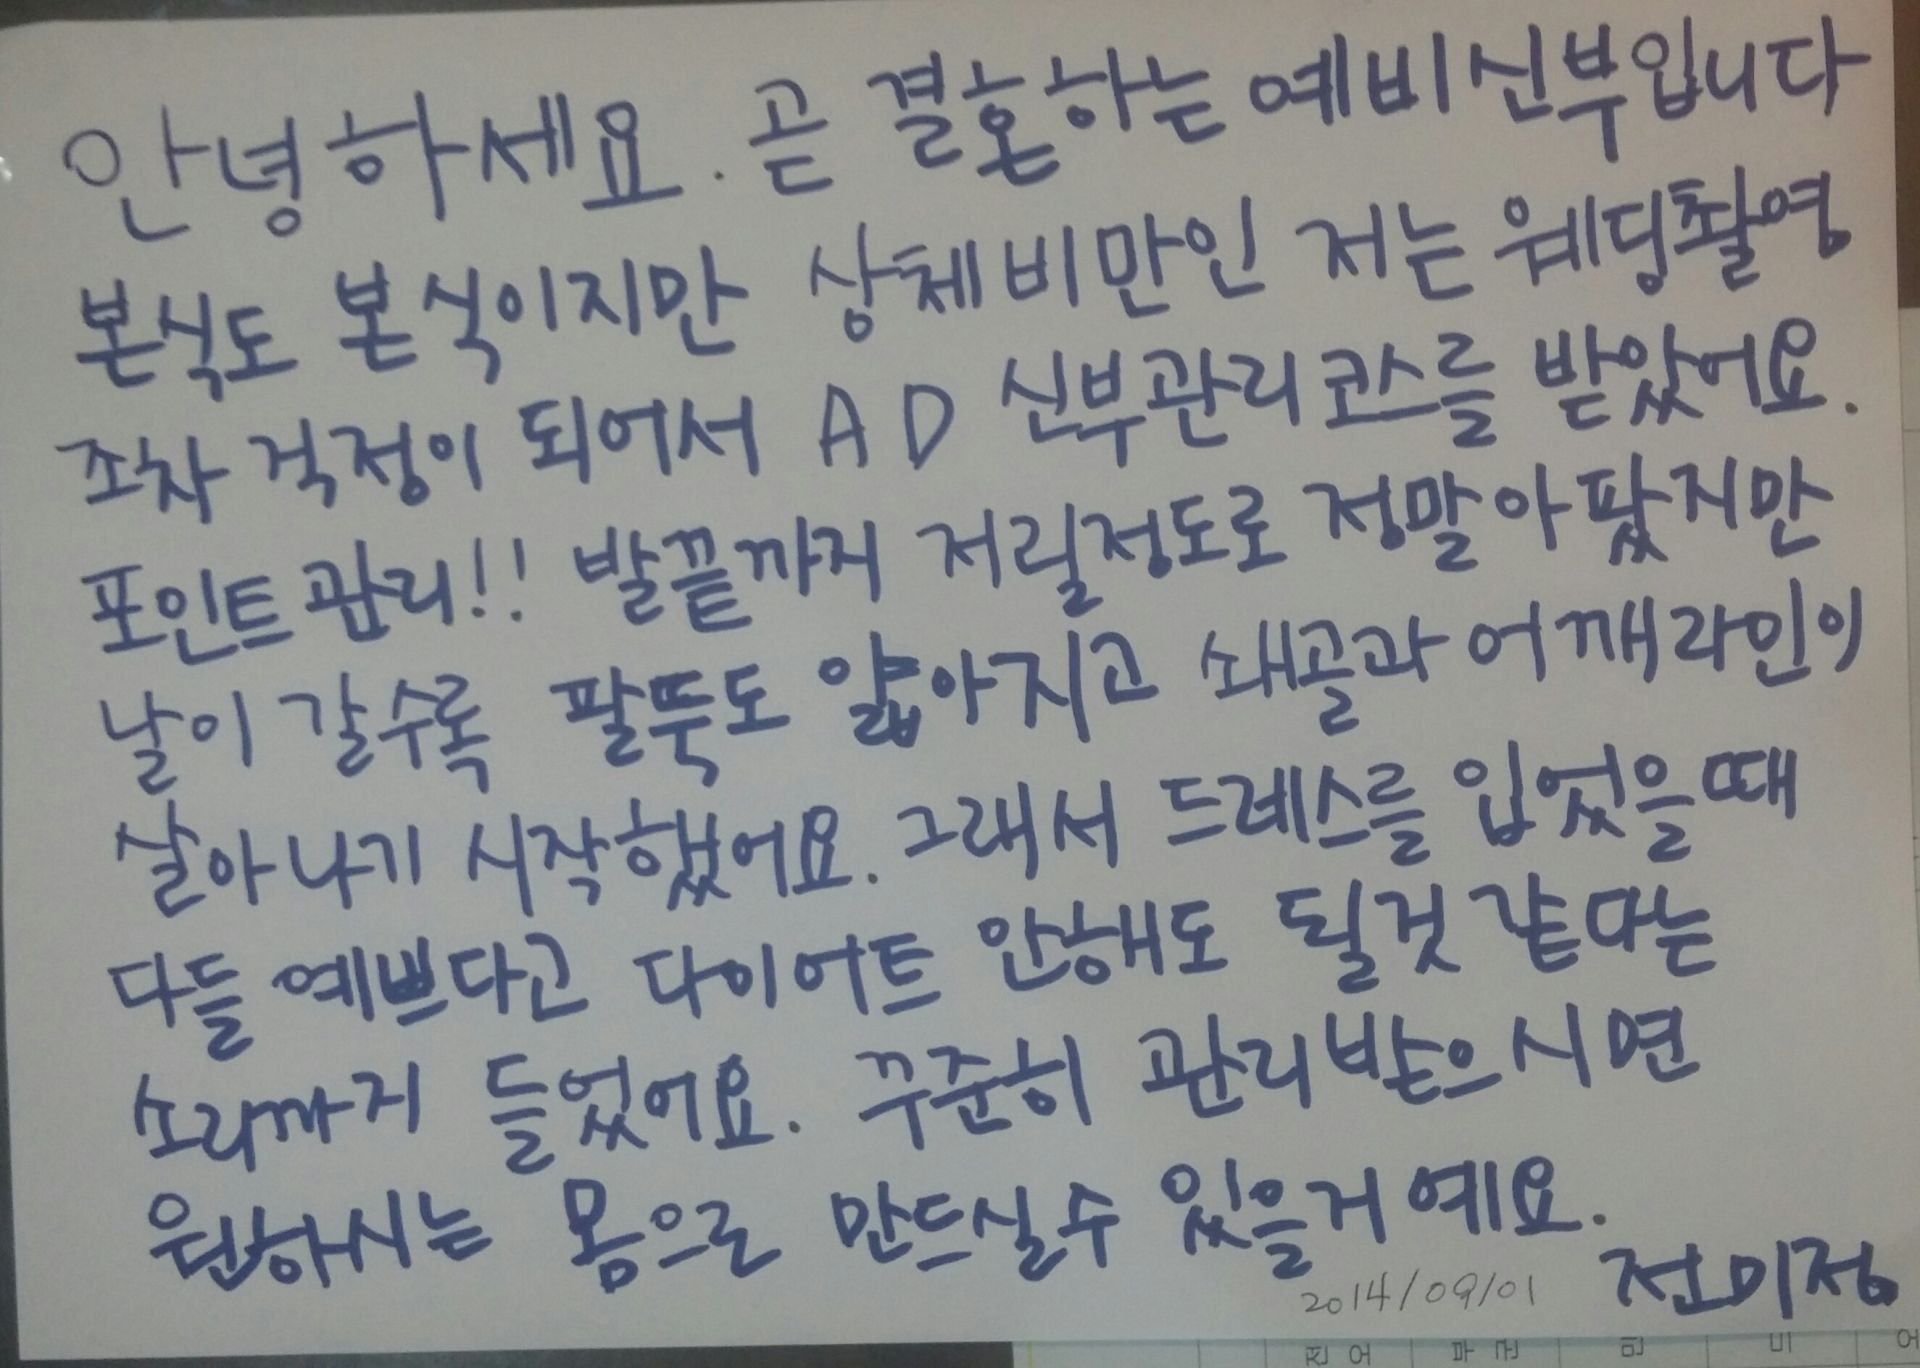 안녕하세요. 곧 결혼하는 예비신부입니다
본식도 본식이지만 상체비만인 저는 웨딩촬영
조차 걱정이 되어서 AD 신부관리코스를 받았어요.
포인트관리!! 발끝까지 저릴정도로 정말아팠지만
날이 갈수록 팔뚝도 얇아지고 쇄골과 어깨라인이
살아나기 시작했어요. 그래서 드레스를 입었을때
다들 예쁘다고 다이어트 안해도 될것 같다는
소리까지 들었어요. 꾸준히 관리받으시면
원하시는 몸으로 만드실수 있을거예요.
2014/09/01 전미정